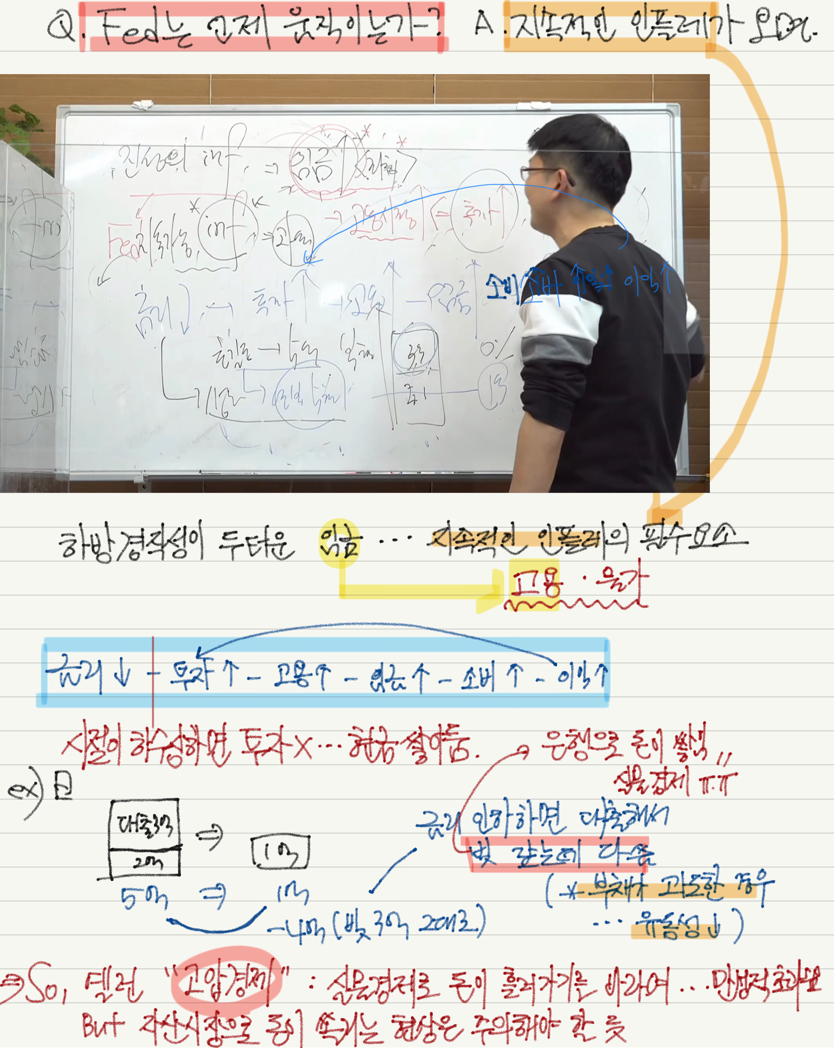 Q. Fed는 언제 움직이는가? A. 지속적인 인플레가 오면.
진성의 inf ⇒ 임금↑ <저축>
Fed 지속가능 inf ⇒ → 고용시장↑ ← 투자↑
금리↓ → 투자↑ → 고용↑ → 임금↑ 소비 소비↑ 이익↑
하방경직성이 두터운 임금 … 지속적인 인플레의 필수요소
고용 · 물가
금리↓ - 투자↑ - 고용↑ - 임금↑ - 소비↑ - 이익↑
시절이 하수상하면 투자X … 현금 쌓아둠.
은행으로 돈이 쌓임
실물경제 ㅠ.ㅠ
ex) 日
대출3억
2억
⇒
1억
5억 ⇒ 1억
-4억 (빚 3억 그대로)
금리 인하하면 대출해서
빚 갚는데 다 씀
(* 부채가 과도한 경우
… 유동성↓)
⇒ So, 옐런 "고압경제" : 실물경제로 돈이 흘러가기를 바라며 … 만성적 초과수요
But 자산시장으로 돈이 쏠리는 현상은 주의해야 할 듯